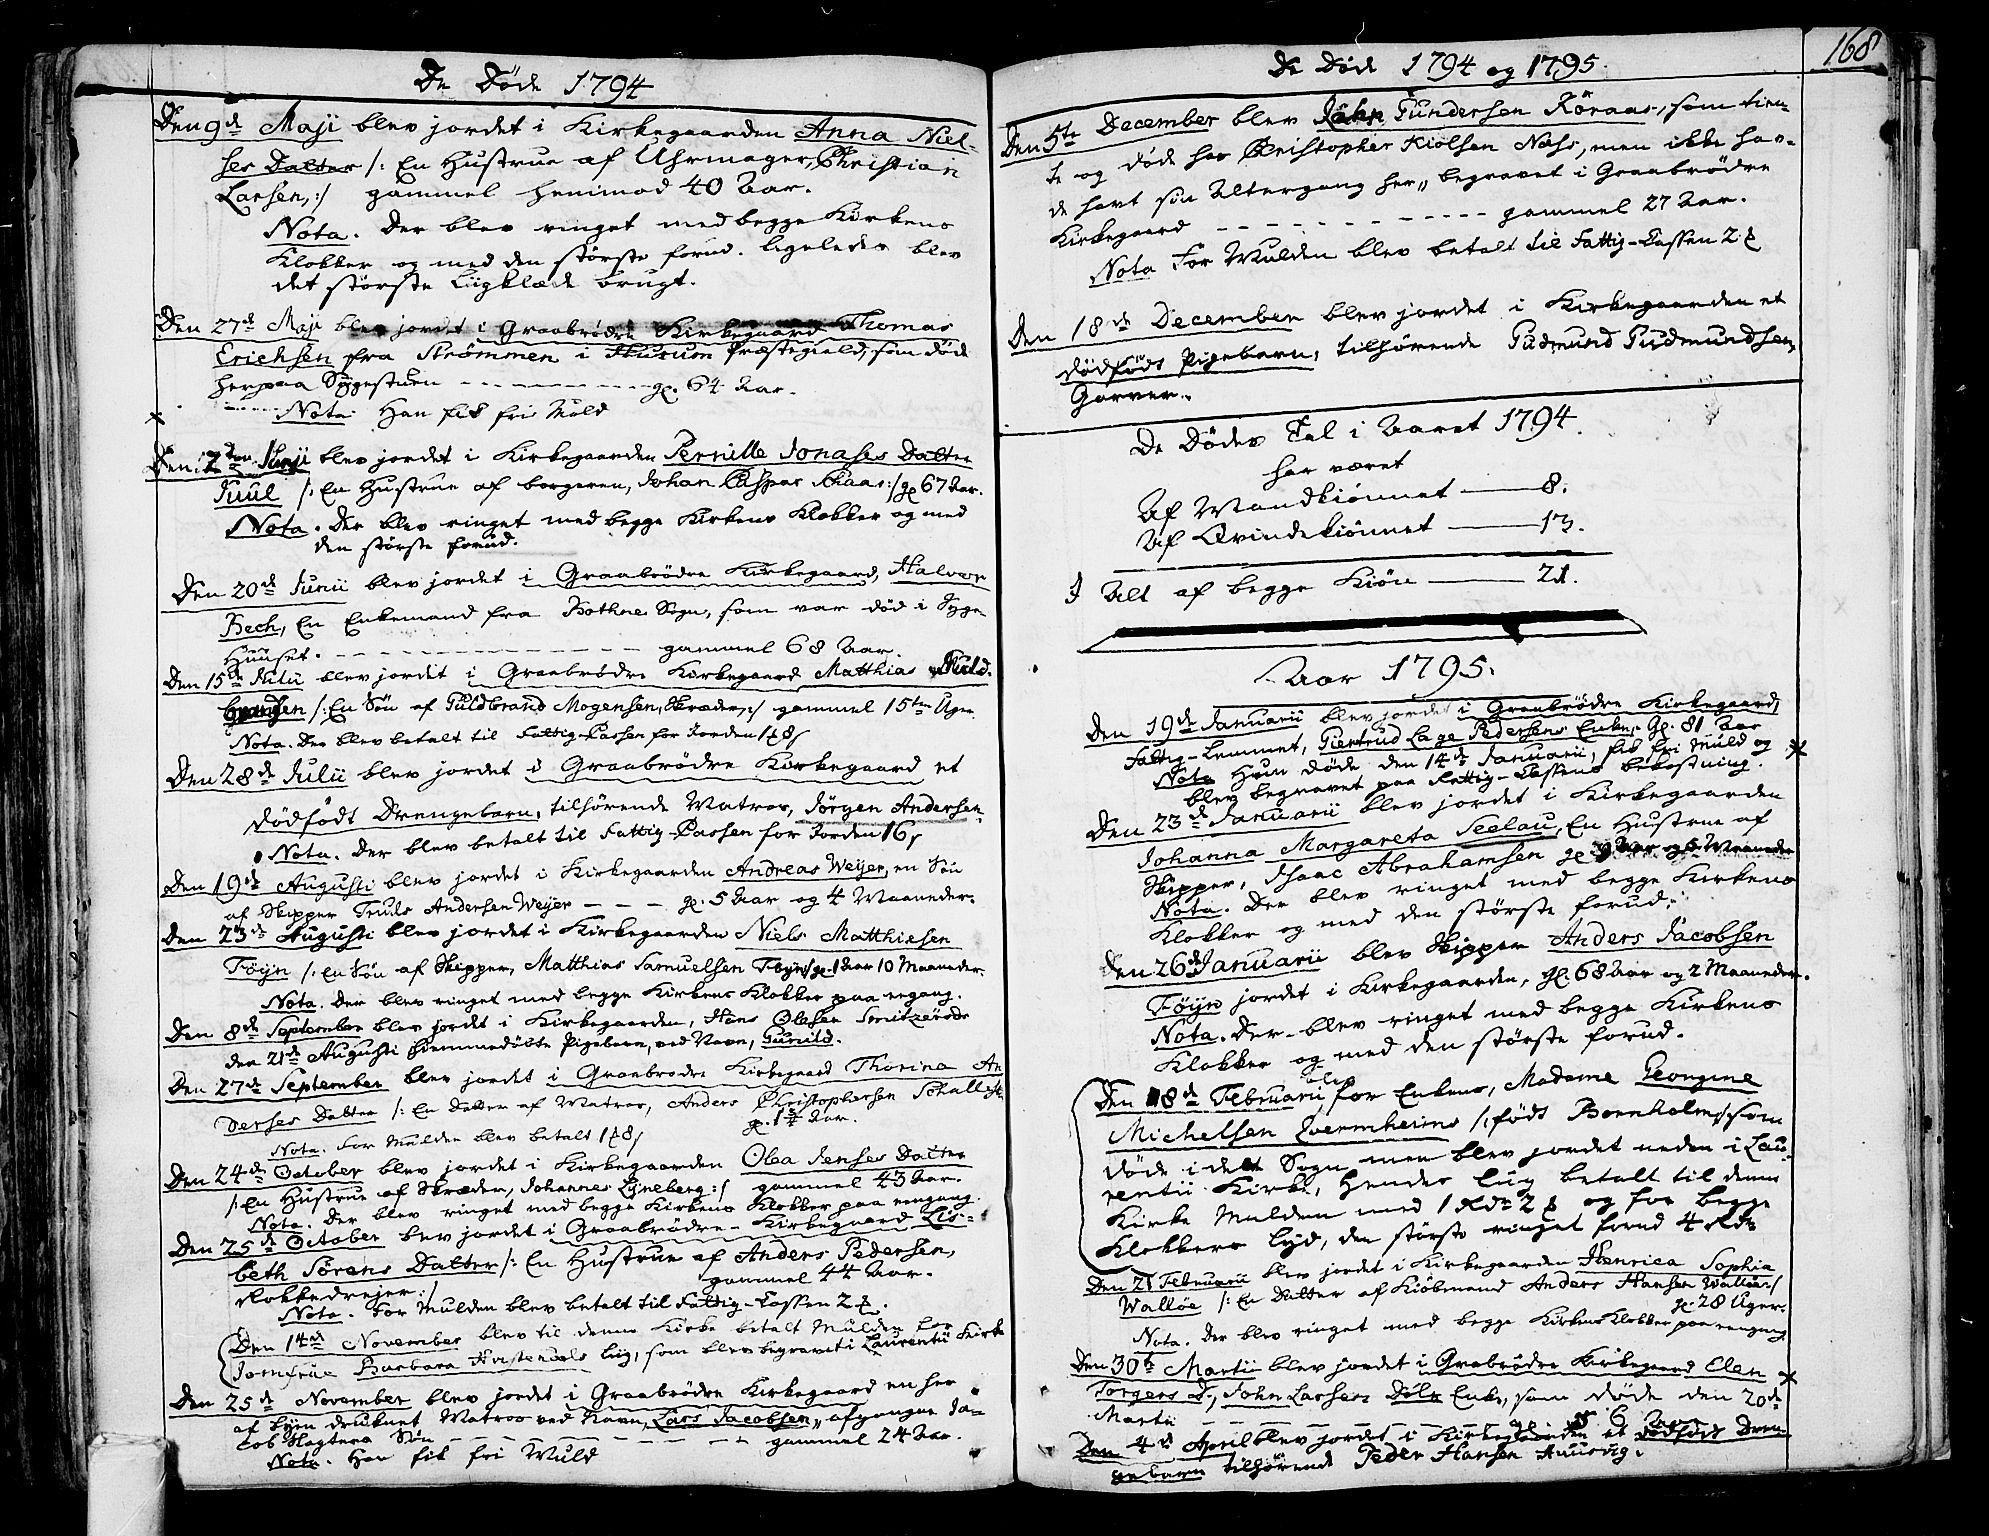 De Döde 1794
Den 9de Maji blev jordet i Kirkegaarden Anna Niel-
ses Datter /: En Hustrue af Uhrmager, Christian
Larsen, :/ gammel henimod 40 Aar.
Nota. Der blev ringet med begge Kirkens
Klokker og med den störste forud. ligeledes blev
det störste Liigklæde brugt.
Den 27de Maji blev jordet i Graabrödre Kirkegaard Thomas
Erichsen fra Strömmen i Hurum Præstegield, som döde
her paa Sygestuen - - - gl. 64 Aar.
Nota. Han fik fri Muld
Den 2den Junji blev jordet i Kirkegaarden Pernille Jonases Datter
Juul /: En Hustrue af borgeren, Johan Caspar Klaas :/ gl 67 Aar.
Nota. Der blev ringet med begge Kirkens Klokker og med
den störste forud.
Den 20de Junii blev jordet i Graabrödre Kirkegaard, Halvor
Bech, En Enkemand fra Bothne Sogn, som var död i Syge-
Huuset. - - - gammel 68 Aar.
Den 15de Julii blev jordet i Graabrödre Kirkegaard Matthias Guld-
brandsen /: En Sön af Guldbrand Mogensen, Skræder, :/ gammel 15ten Uger.
Nota. Der blev betalt til Fattig-Cassen for Jorden
Den 28de Julii blev jordet i Graabrödre Kirkegaard et
dödfödt Drengebarn, tilhörende Matros, Jörgen Andersen.
Nota. Der blev betalt til Fattig-Cassen for Jorden 16
Den 19de Augusti blev jordet i Kirkegaarden Andreas Weyer, en Sön
af Skipper Truls Andersen Weyer - - - gl. 5 Aar og 4 Maaneder.
Den 23de Augusti blev jordet i Kirkegaarden Niels Matthiesen
Föyn /: En Sön af Skipper, Matthias Samuelsen Föyn :/ gl. 1 Aar 10 Maaneder.
Nota. Der blev ringet med begge Kirkens Klokker paa eengang.
Den 8de September blev jordet i Kirkegaarden, Hans Olesen
den 21de Augusti hiemmedöbte Pigebarn, ved Navn, Gunild.
Den 27de September blev jordet i Graabrodre Kirkegaard Thorina An-
derses Datter /: En Datter af Matros, Anders Christophersen
gl. 1½ Aar.
Nota. For Mulden blev betalt
Den 24de October blev jordet i Kirkegaarden Olea Jenses Datter
/: En Hustrue af Skræder, Johannes Lyneberg :/ gammel 43 Aar.
Nota. Der blev ringet med begge Kirkens Klokker paa eengang.
Den 25de October bev jordet i Graabrödre-Kirkegaard Lis-
beth Sörens Datter /: En Hustrue af Anders Pedersen,
Blokkedrejer :/ gammel 44 Aar.
Nota. For Mulden blev betalt til Fattig-Cassen 2
Den 14de November blev til denne Kirke betalt Mulden for
Jomfrue Barbara liig, som blev begravet i Laurentii Kirke
Den 25de November blev jordet i Graabrödre Kirkegaard en her
af byen druknet Matros ved Navn, Lars Jacobsen, afgangne Ja-
cob Slagters Sön - - - gammel 24 Aar.
Nota. Han fik fri Muld
De Döde 1794 og 1795.
168
Den 5te December blev Gundersen Röraas, som tien-
te og döde hos Christopher Kiölsen Næss, men ikke hav-
de havt sin Altergang her, begravet i Graabrödre
Kirkegaard - - - gammel 27 Aar.
Nota For Mulden blev betalt til Fattig-Cassen 2
Den 18de December blev jordet i Kirkegaarden et
dödfödt Pigebarn, tilhörende Gudmund Gudmundsen
Garver.
De Dödes Tal i Aaret 1794.
har været
Af Mandkiönnet — 8.
Af Qvindekiönnet — 13.
I Alt af begge Kiön — 21.
Aar 1795.
Den 19de Januarii blev jordet i Graabrödre Kirkegaard,
Fattig-Lemmet, Giertrud Lage Pedersens Enke, gl. 81 Aar
Nota Hun döde den 14de Januarii, fik fri Muld og
blev begravet paa Fattig-Cassens bekostning.
Den 23de Januarii blev jordet i Kirkegaarden
Johanna Margareta Seelau, En Hustrue af
Skipper, Isaac Abrahamsen gl Aar og 5 Maaneder
Nota. Der blev ringet med begge Kirkens
Klokker og med den störste forud.
Den 26de Januarii blev Skipper Anders Jacobsen
Föyn jordet i Kirkegaarden, gl. 68 Aar og 2 Maaneder.
Nota. Der blev ringet med begge Kirkens
Klokker og med den störste forud.
Den 18de Februarii blev for Enkens, Madame Georgine
Michelsen /: födt Bornholm :/ som
döde i dette Sogn men blev jordet neden i Lau-
rentii Kirke, Hendes liig betalt til denne
Kirke Mulden med 1 Rdr 2 og for begge
Klokkers lyd, den störste ringet forud 4 Rdr
Den 21 Februarii blev jordet i Kirkegaarden Henrica Sophia
Wallöe /: En Datter af Kiöbmand Anders Hansen Wallöe :/
gl. 28 Uger.
Nota. Der blev ringet med begge Kirkens Klokker paa eengang
Den 30te Martii blev jordet i Graabrödre Kirkegaard Elen
Torgers D., John Larsens Enke, som döde den 20de
Martii - - - gl. 56 Aar
Den 4de April blev jordet i Kirkegaarden et dödfödt Dren-
gebarn tilhörende Peder Hansen